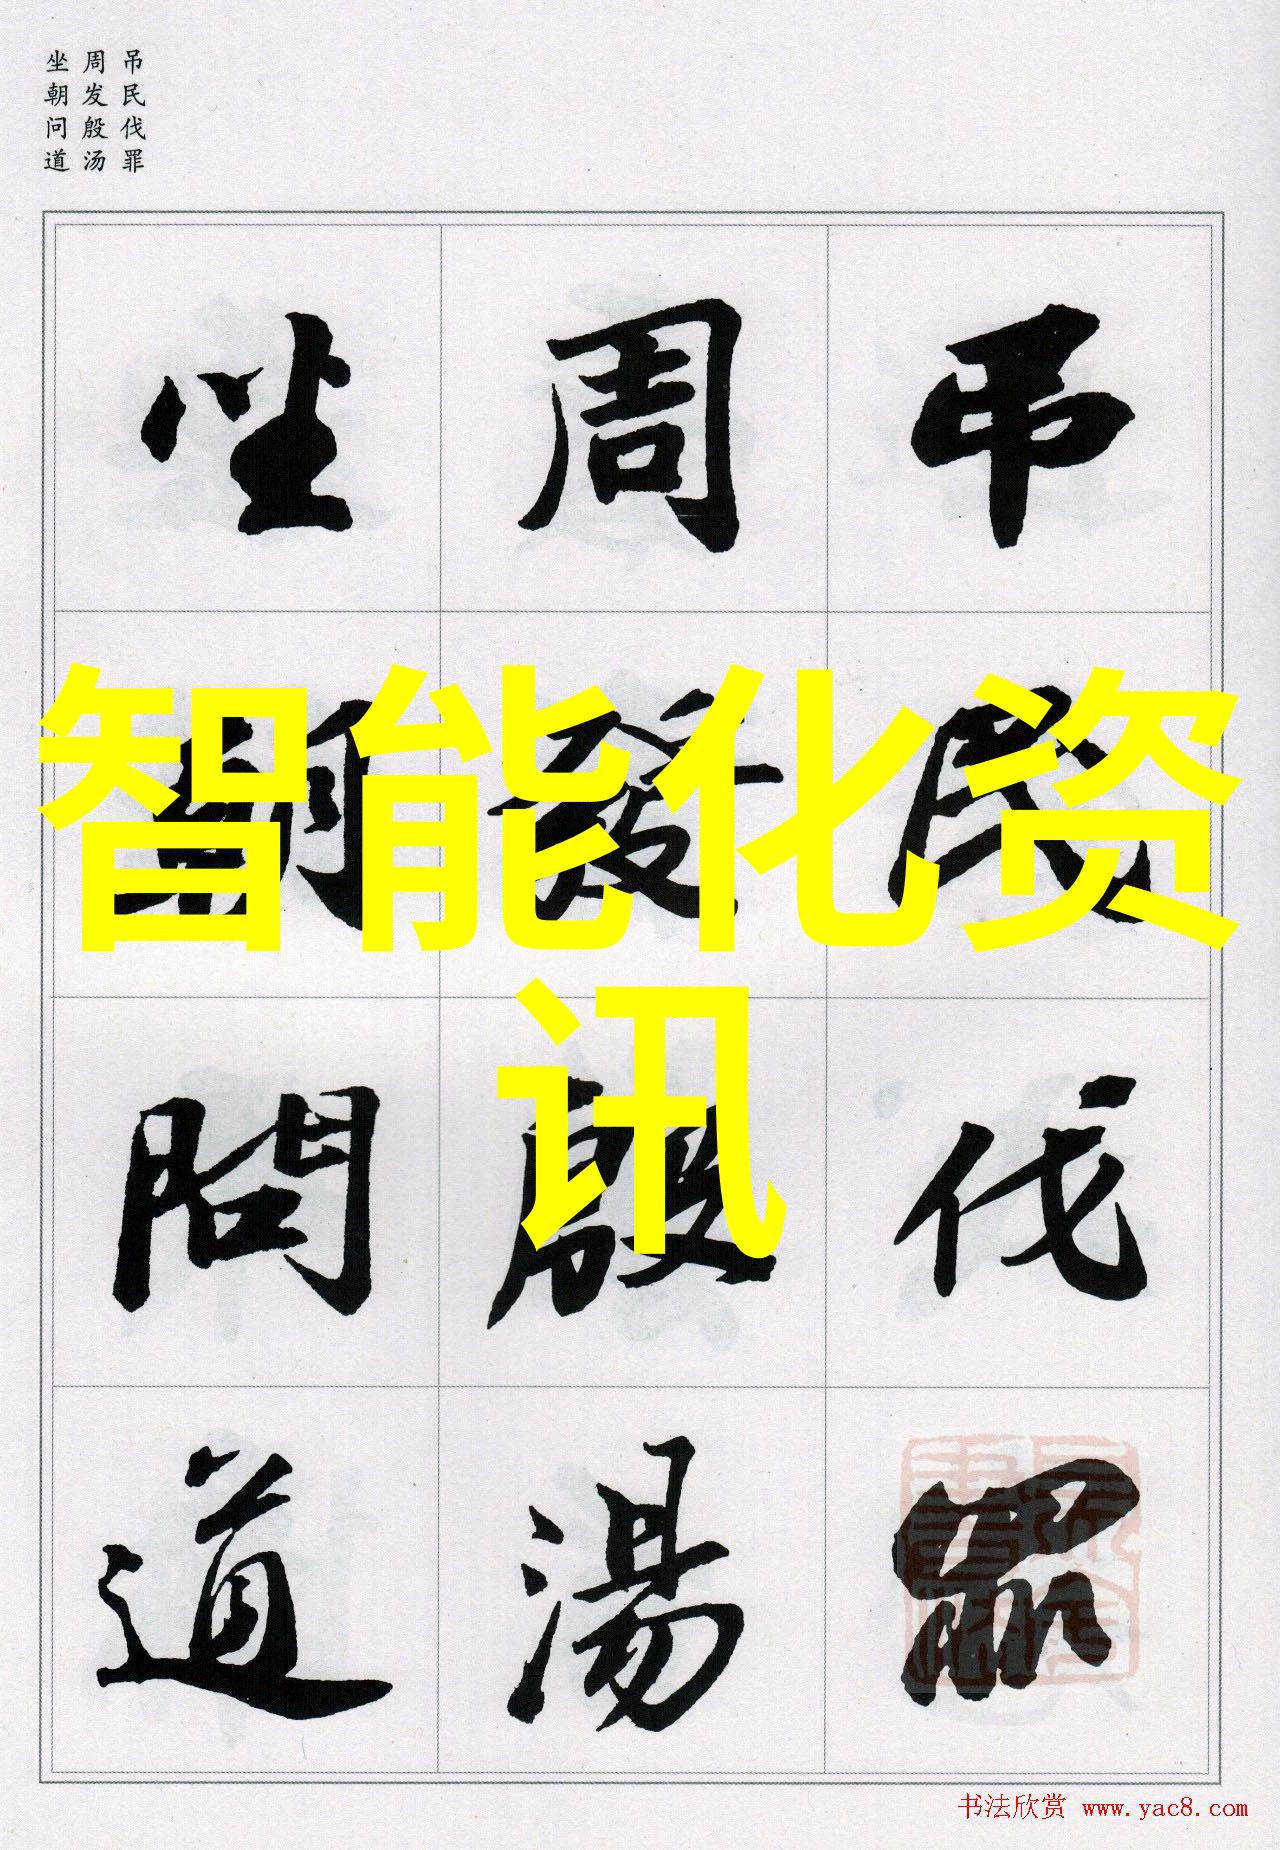 吊民伐罪
周发殷汤
坐朝问道
吊民伐罪
周發殷湯
坐朝問道
智能化资
讯
书法欣赏 www.yac8.com